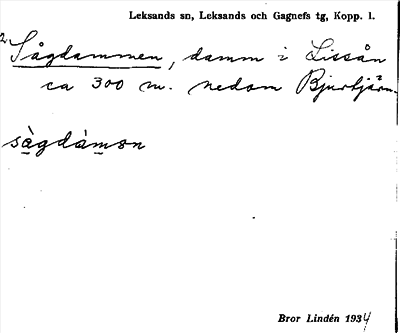 Leksands sn, Leksands och Gagnefs tg, Kopp. l.
2 Sågdammen, damm i Lissån
ca 300 m. nedom Bjurtjärn.
sàgdàmən
Bror Lindén 1934